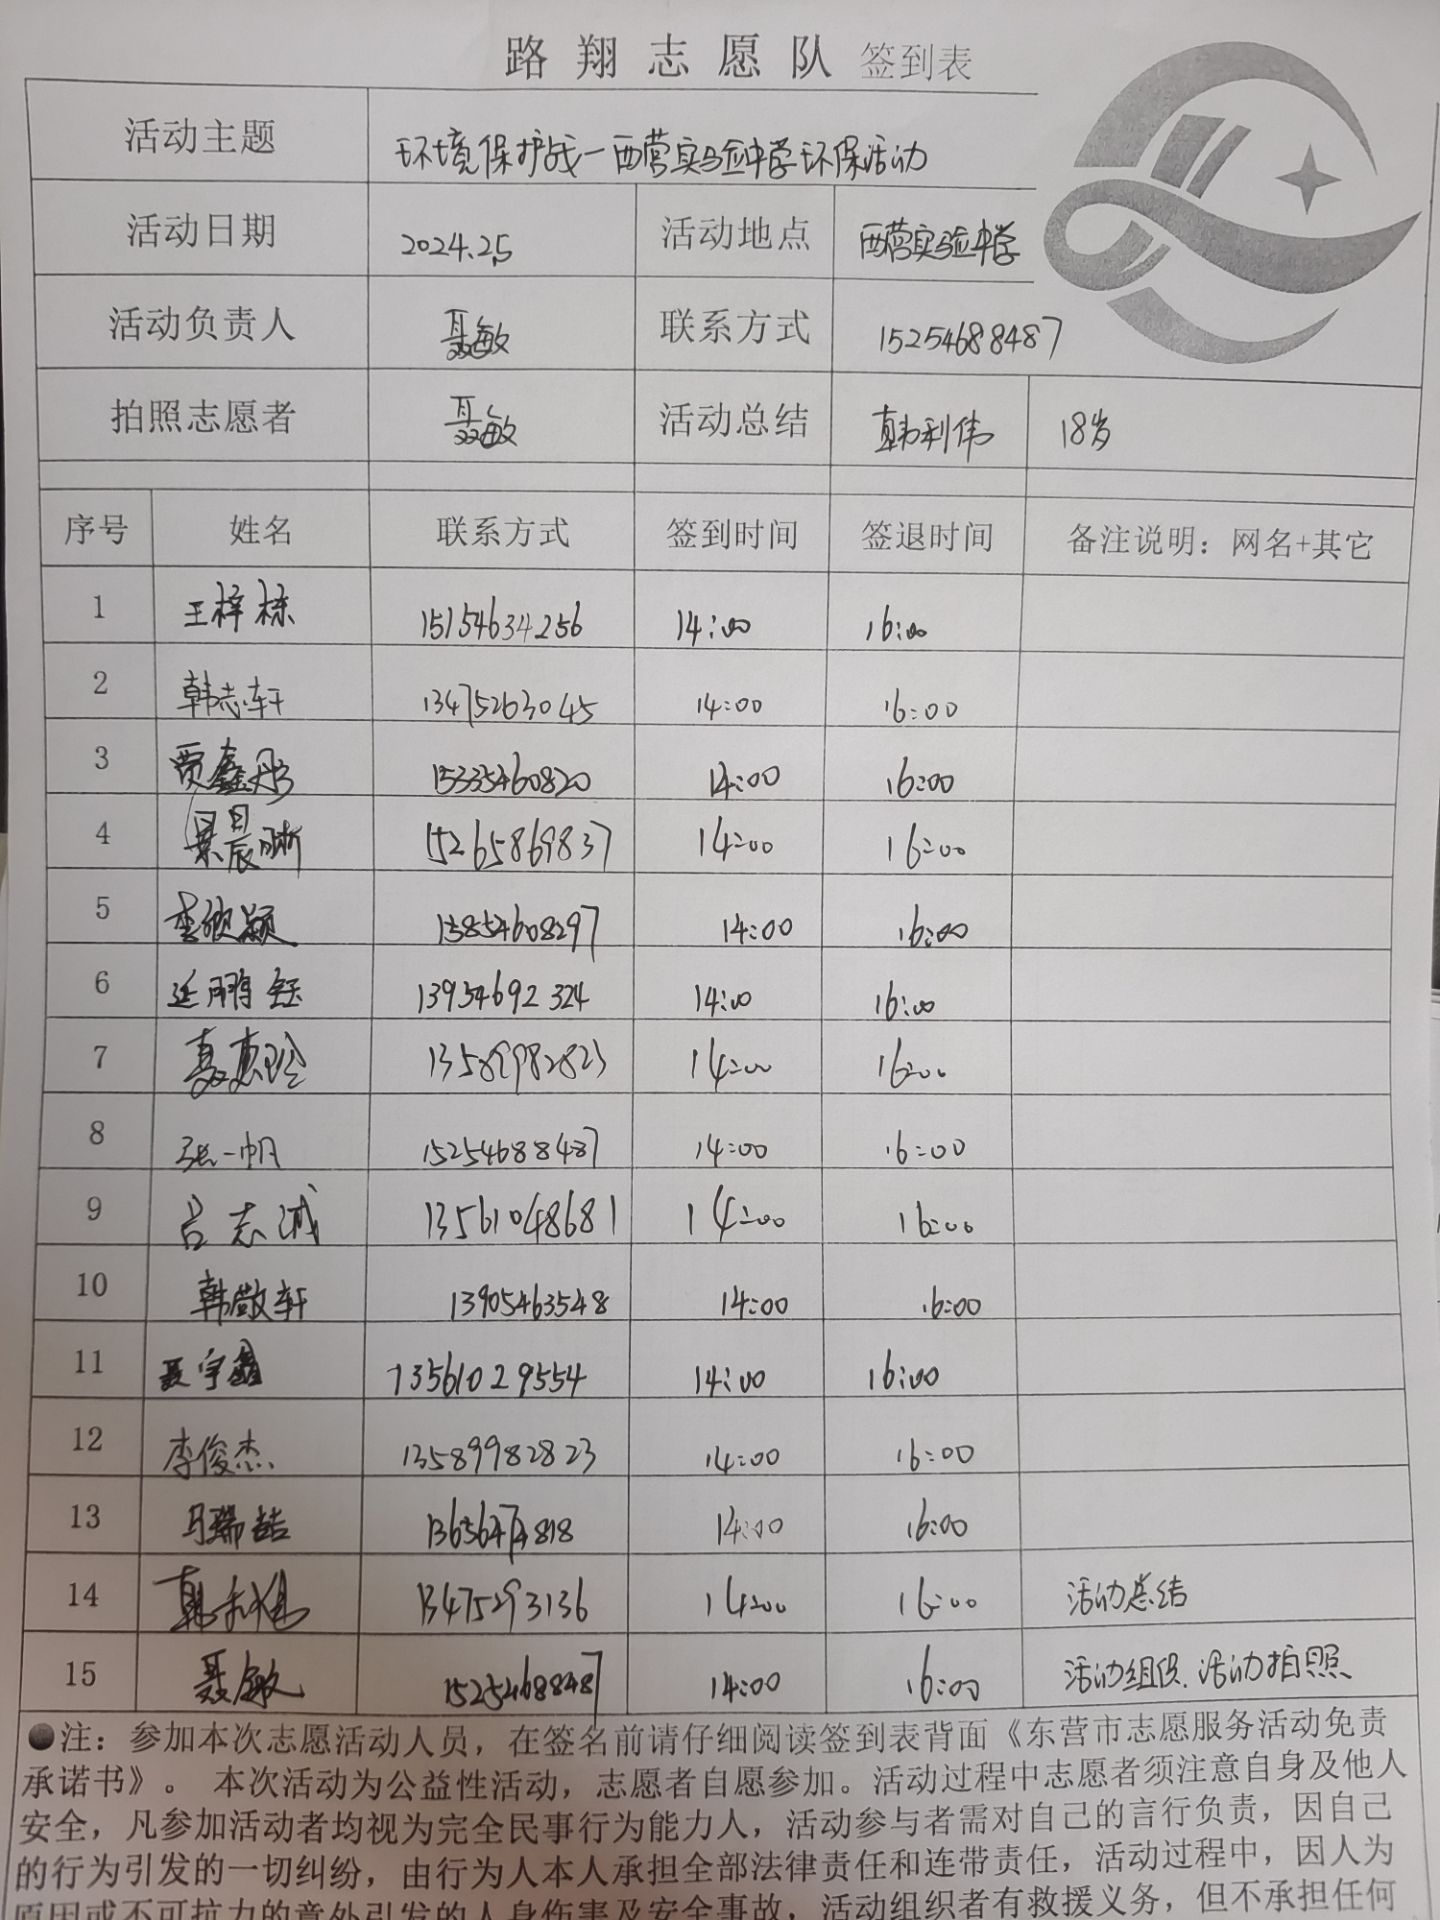 路翔志愿队 签到表
活动主题 环境保护战一西营实验中学环保活动
活动日期 2024.2.5 活动地点 西营实验中学
活动负责人 聂敏 联系方式 15254688487
拍照志愿者 聂敏 活动总结 韩利伟 18岁
序号 姓名 联系方式 签到时间 签退时间 备注说明：网名+其它
1 王梓栋 15154634256 14:00 16:00
2 韩志轩 13475263045 14:00 16:00
3 贾鑫彤 15335460820 14:00 16:00
4 景晨晰 15265869837 14:00 16:00
5 李欣颖 13854608297 14:00 16:00
6 延鹏钰 13954692324 14:00 16:00
7 聂惠玲 13589982823 14:00 16:00
8 张一帆 15254688487 14:00 16:00
9 吕志诚 13561048681 14:00 16:00
10 韩敬轩 13905463548 14:00 16:00
11 聂宇鑫 13561029554 14:00 16:00
12 李俊杰 13589982823 14:00 16:00
13 马瑞喆 13656474818 14:00 16:00
14 韩利伟 13475293136 14:00 16:00 活动总结
15 聂敏 15254688487 14:00 16:00 活动组织.活动拍照
●注：参加本次志愿活动人员，在签名前请仔细阅读签到表背面《东营市志愿服务活动免责
承诺书》。 本次活动为公益性活动，志愿者自愿参加。活动过程中志愿者须注意自身及他人
安全，凡参加活动者均视为完全民事行为能力人，活动参与者需对自己的言行负责，因自己
的行为引发的一切纠纷，由行为人本人承担全部法律责任和连带责任，活动过程中，因人为
原因或不可抗力的意外引发的人身伤害及安全事故，活动组织者有救援义务，但不承担任何